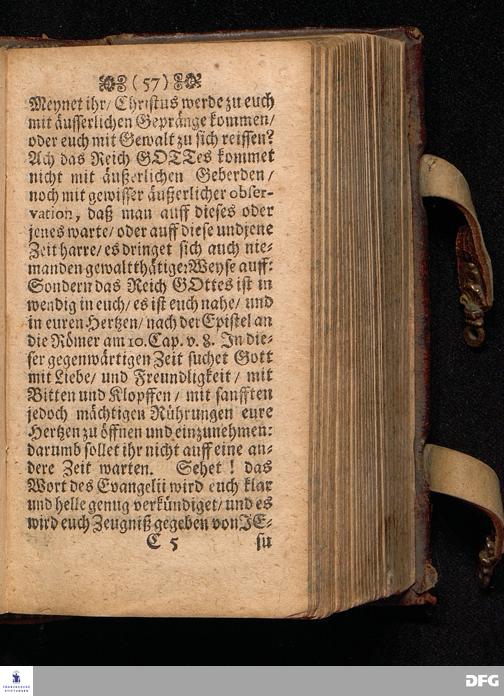 (57)
Meynet ihr/ Christus werde zu euch
mit äusserlichen Gepränge kommen/
oder euch mit Gewalt zu sich reissen?
Ach das Reich GOTTes kommet
nicht mit äußerlichen Geberden/
noch mit gewisser äußerlicher obser-
vation, daß man auff dieses oder
jenes warte/ oder auff diese und jene
Zeit harre/ es dringet sich auch nie-
manden gewaltthätiger Weyse auff:
Sondern das Reich GOttes ist in
wendig in euch/ es ist euch nahe/ und
in euren Hertzen/ nach der Epistel an
die Römer am 10. Cap. v. 8. In die-
ser gegenwärtigen Zeit suchet Gott
mit Liebe/ und Freundligkeit/ mit
Bitten und Klopffen/ mit sanfften
jedoch mächtigen Rührungen eure
Hertzen zu öffnen und einzunehmen:
darumb sollet ihr nicht auff eine an-
dere Zeit warten. Sehet! das
Wort des Evangelii wird euch klar
und helle genug verkündiget/ und es
wird euch Zeugniß gegeben von JE-
C 5 su
FRANCKESCHE
STIFTUNGEN
DFG